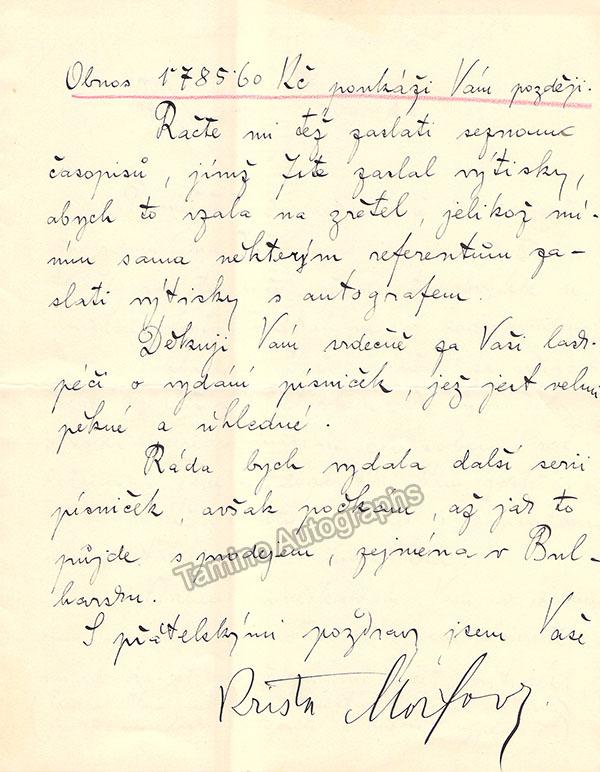 Obnos 1785·60 Kč poukáži Vám později.
Račte mi též zaslati seznam
časopisů, jimž jste zaslal výtisky,
abych to vzala na zřetel, jelikož mí-
ním sama některým referentům za-
slati výtisky s autografem.
Děkuji Vám srdečně za Vaši lask.
péči o vydání písniček, jež jest velmi
pěkné a úhledné.
Ráda bych vydala další serii
písniček, avšak počkám, až jak to
půjde s prodejem, zejména v Bul-
harsku.
S přátelskými pozdravy jsem Vaše
Krista Morfova.
Tamino Autographs